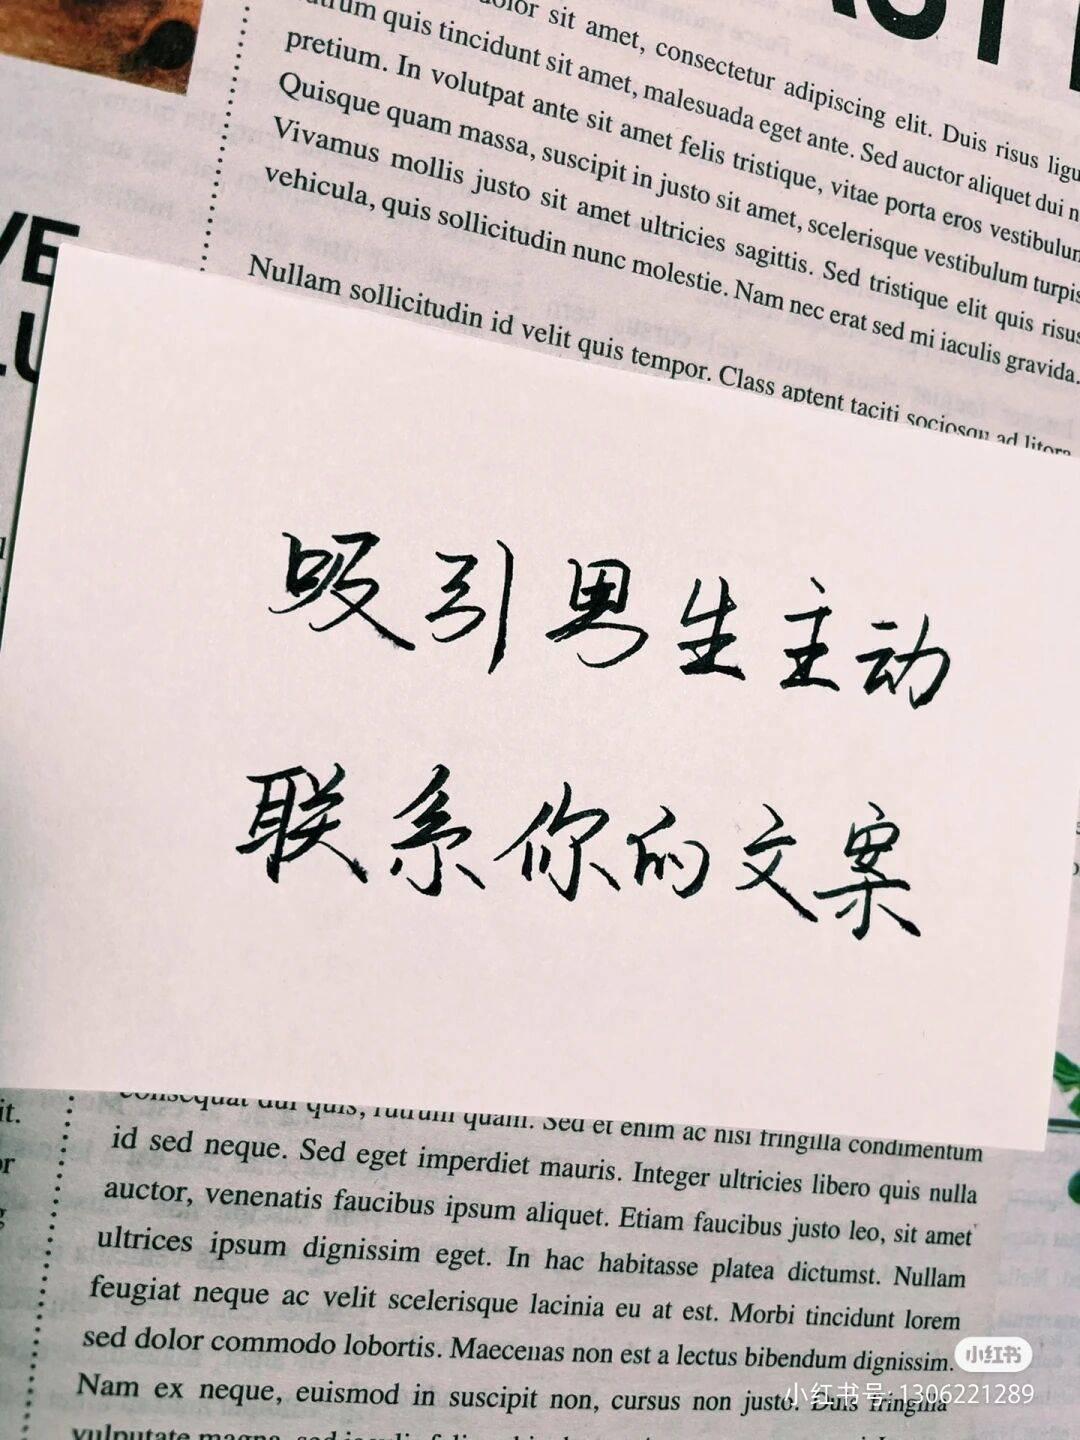 dolor sit amet, consectetur adipiscing elit. Duis risus
quis tincidunt sit amet, malesuada eget ante. Sed auctor aliquet dui
pretium. In volutpat ante sit amet felis tristique, vitae porta eros vestibulum
Quisque quam massa, suscipit in justo sit amet, scelerisque vestibulum turpis
Vivamus mollis justo sit amet ultricies sagittis. Sed tristique elit quis risus
vehicula, quis sollicitudin nunc molestie. Nam nec erat sed mi iaculis gravida.
Nullam sollicitudin id velit quis tempor. Class aptent taciti sociosqu ad litora
吸引男生主动
联系你的文案
consequat dui quis, rutrum quam. Sed et enim ac nisi fringilla condimentum
id sed neque. Sed eget imperdiet mauris. Integer ultricies libero quis nulla
auctor, venenatis faucibus ipsum aliquet. Etiam faucibus justo leo, sit amet
ultrices ipsum dignissim eget. In hac habitasse platea dictumst. Nullam
feugiat neque ac velit scelerisque lacinia eu at est. Morbi tincidunt lorem
sed dolor commodo lobortis. Maecenas non est a lectus bibendum dignissim.
Nam ex neque, euismod in suscipit non, cursus non justo. Duis fringilla
小红书
小红书号:1306221289